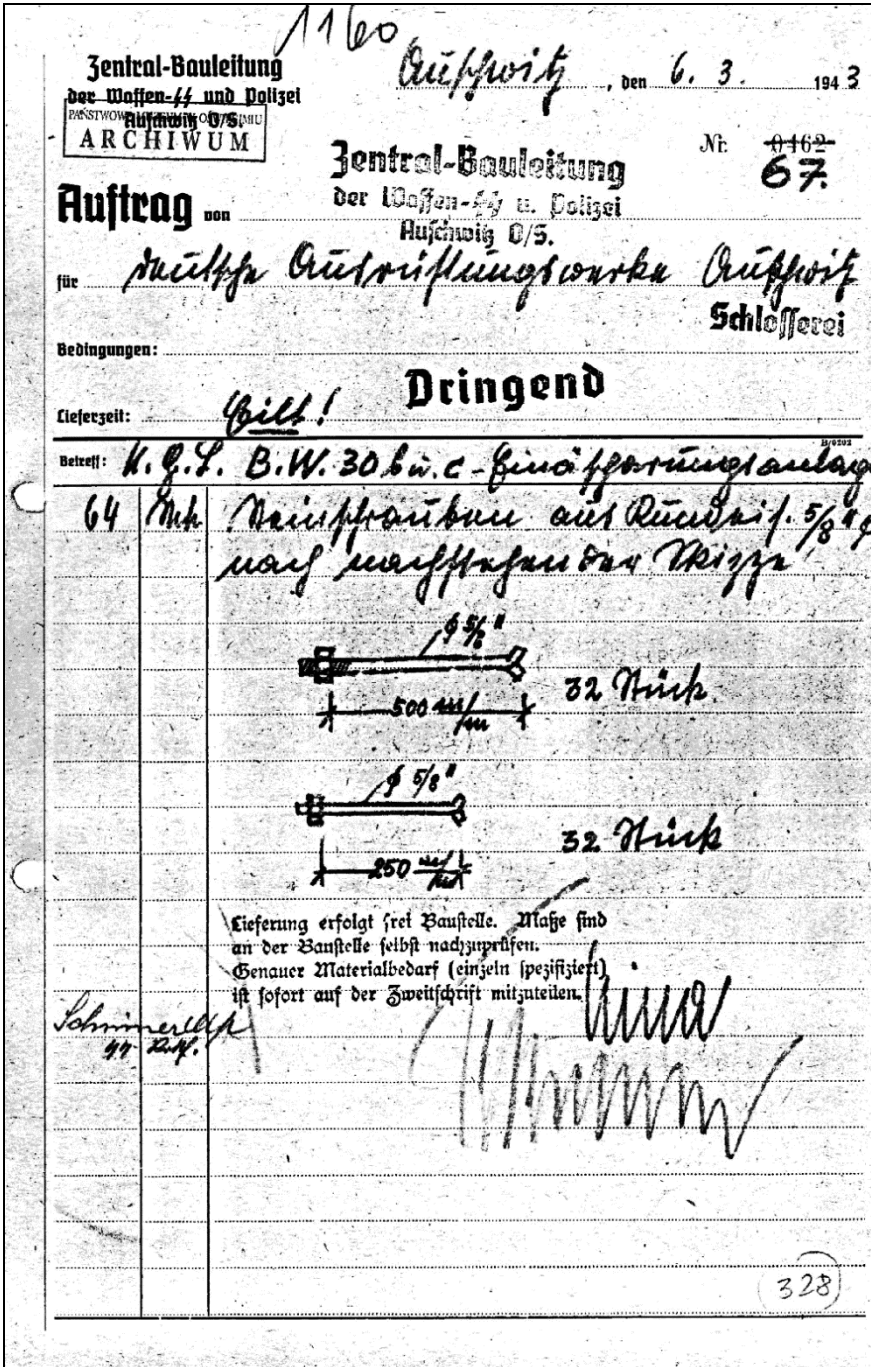 1160
Zentral-Bauleitung
der Waffen-SS und Polizei
Auschwitz O/S.
PAŃSTWOWE MUZEUM W OŚWIĘCIMIU
ARCHIWUM
Auschwitz, den 6. 3. 1943
Nr. 0462
67.
Zentral-Bauleitung
der Waffen-SS u. Polizei
Auschwitz O/S.
Auftrag von
für Deutsche Ausrüstungswerke Auschwitz
Schlosserei
Bedingungen:
Dringend
Lieferzeit: Eilt!
B/0202
Betreff: K.G.L. B.W. 30 b u. c - Einäscherungsanlage
64 Stck Steinschrauben aus Rundeis. 5/8" φ
nach nachstehender Skizze!
φ 5/8"
32 Stück
500 m/m
φ 5/8"
32 Stück
250 m/m
Lieferung erfolgt frei Baustelle. Maße sind
an der Baustelle selbst nachzuprüfen.
Genauer Materialbedarf (einzeln spezifiziert)
ist sofort auf der Zweitschrift mitzuteilen.
328